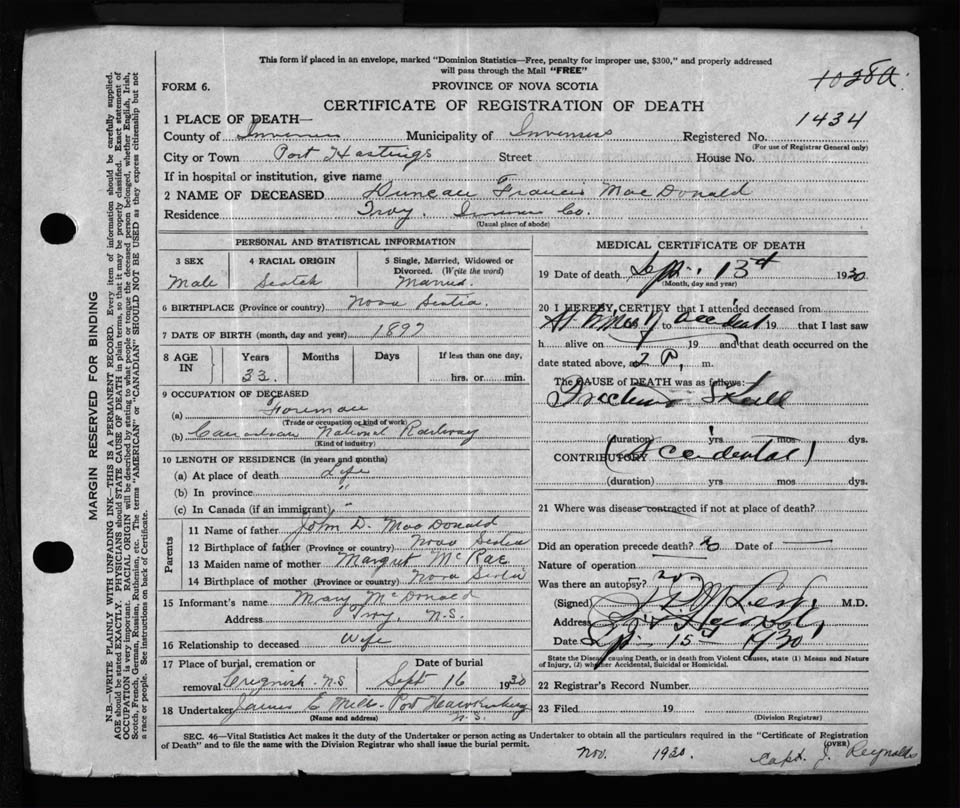 This form if placed in an envelope, marked "Dominion Statistics—Free, penalty for improper use, $300," and properly addressed
will pass through the Mail "FREE"
1028A.
FORM 6.
PROVINCE OF NOVA SCOTIA
CERTIFICATE OF REGISTRATION OF DEATH
1434
1 PLACE OF DEATH—
County of Inverness Municipality of Inverness Registered No.
(For use of Registrar General only)
City or Town Port Hastings Street House No.
If in hospital or institution, give name
2 NAME OF DECEASED Duncan Francis MacDonald
Residence Troy, Inverness Co.
(Usual place of abode)
PERSONAL AND STATISTICAL INFORMATION
3 SEX 4 RACIAL ORIGIN 5 Single, Married, Widowed or
Divorced. (Write the word)
Male Scotch Married.
6 BIRTHPLACE (Province or country) Nova Scotia.
7 DATE OF BIRTH (month, day and year) 1897
8 AGE IN Years Months Days If less than one day,
33. hrs. or min.
9 OCCUPATION OF DECEASED
(a) Foreman
(Trade or occupation or kind of work)
(b) Canadian National Railway
(Kind of industry)
10 LENGTH OF RESIDENCE (in years and months)
(a) At place of death Life
(b) In province "
(c) In Canada (if an immigrant) "
Parents
11 Name of father John D. MacDonald
12 Birthplace of father (Province or country) Nova Scotia
13 Maiden name of mother Margret McRae
14 Birthplace of mother (Province or country) Nova Scotia
15 Informant's name Mary McDonald
Address Troy, N.S.
16 Relationship to deceased Wife
17 Place of burial, cremation or Date of burial
removal Creignish N.S Sept 16 1930
18 Undertaker James E Mills Port Hawkesbury
(Name and address) N.S.
MEDICAL CERTIFICATE OF DEATH
19 Date of death Sept. 13th 1930
(Month, day and year)
20 I HEREBY CERTIFY that I attended deceased from
At time of accident 19 to 19 that I last saw
h alive on 19 and that death occurred on the
date stated above, at 2 P. m.
The CAUSE of DEATH was as follows:
Fracture Skull
(duration) yrs mos dys.
CONTRIBUTORY (Accidental)
(duration) yrs mos dys.
21 Where was disease contracted if not at place of death?
Did an operation precede death? No Date of —
Nature of operation —
Was there an autopsy? no
(Signed) M.D.
Address
Date Sept 15 1930
State the Disease causing Death, or in death from Violent Causes, state (1) Means and Nature
of Injury, (2) whether Accidental, Suicidal or Homicidal.
22 Registrar's Record Number
23 Filed 19
(Division Registrar)
SEC. 46—Vital Statistics Act makes it the duty of the Undertaker or person acting as Undertaker to obtain all the particulars required in the "Certificate of Registration
of Death" and to file the same with the Division Registrar who shall issue the burial permit.
(OVER)
Nov. 1930. Capt. J. Reynolds
MARGIN RESERVED FOR BINDING
N.B.—WRITE PLAINLY WITH UNFADING INK—THIS IS A PERMANENT RECORD. Every item of information should be carefully supplied.
AGE should be stated EXACTLY. PHYSICIANS should STATE CAUSE OF DEATH in plain terms, so that it may be properly classified. Exact statement of
OCCUPATION is very important. RACIAL ORIGIN will be described by stating to what people or tongue the deceased person belonged, whether English, Irish,
Scotch, French, German, Russian, Ruthenian, etc. The terms "AMERICAN" or "CANADIAN" SHOULD NOT BE USED as they express citizenship but not
a race or people. See instructions on back of Certificate.